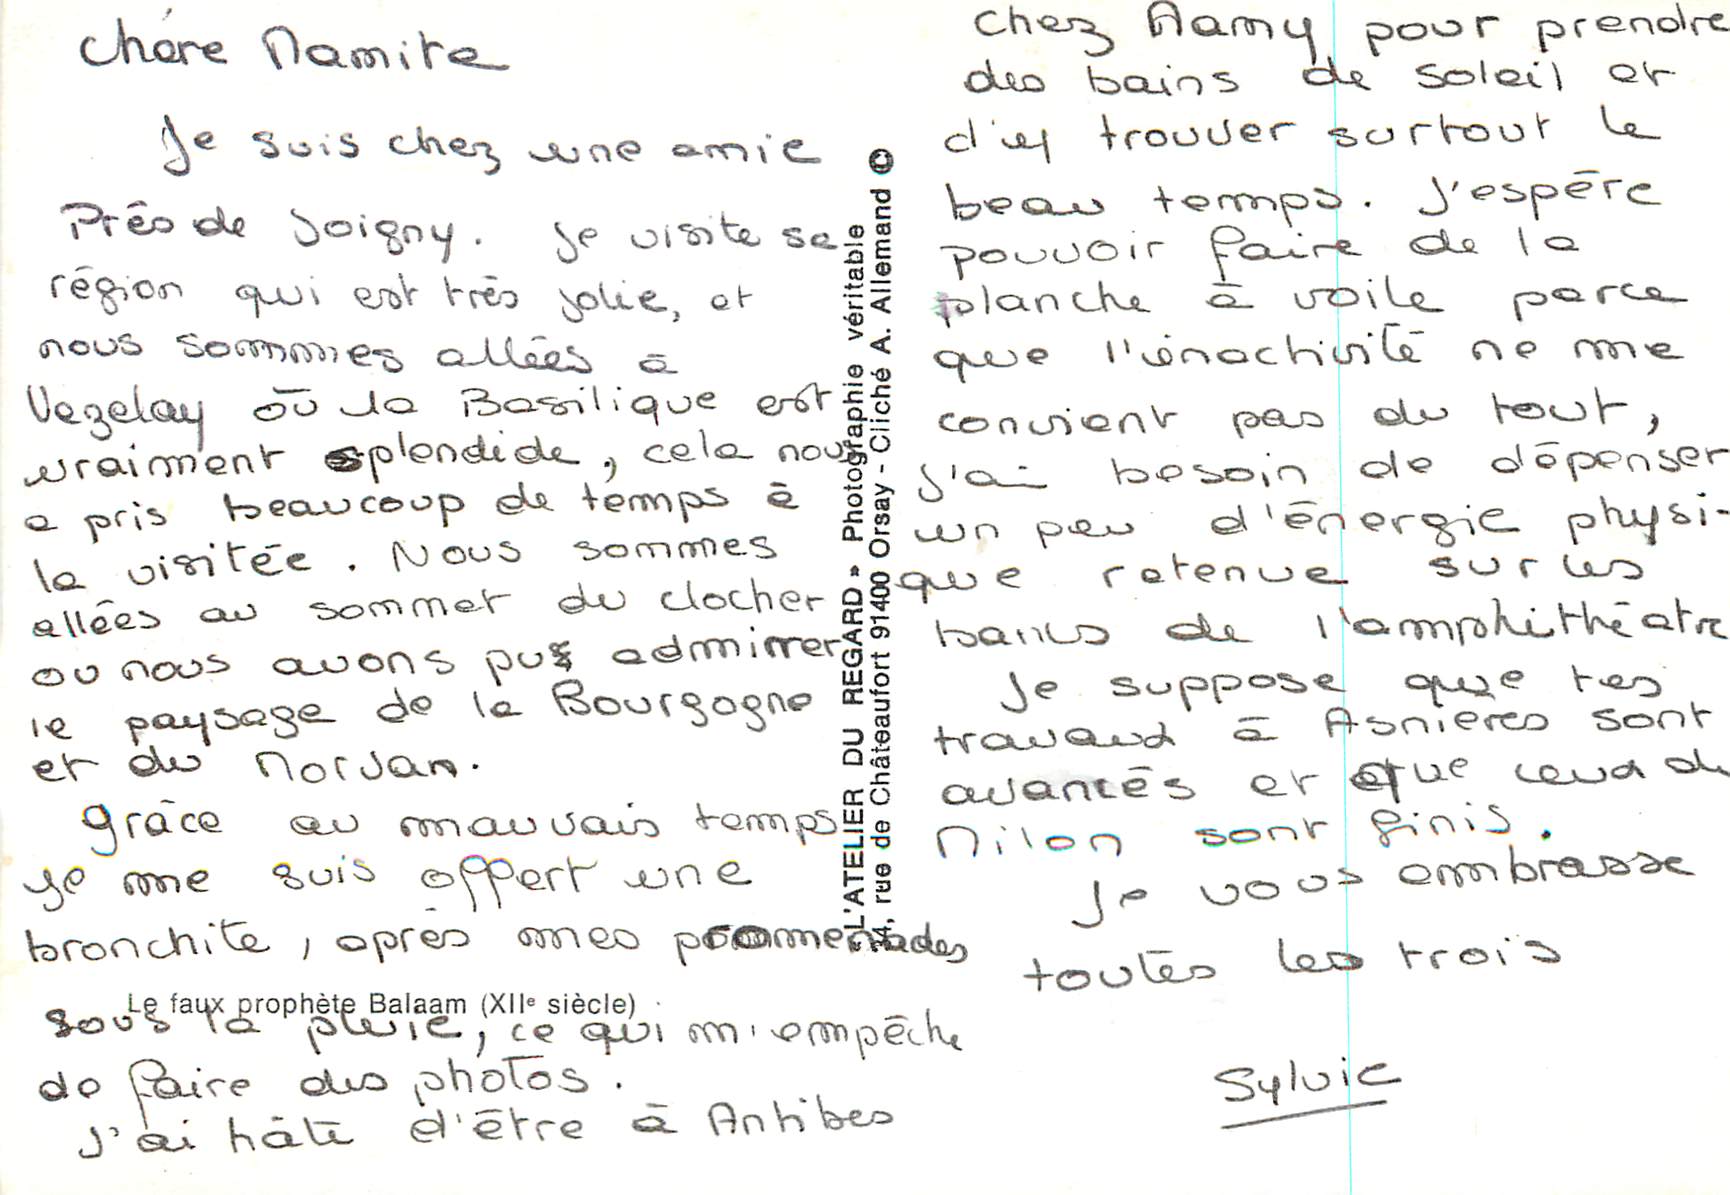 Chère Mamite
Je suis chez une amie
Près de Joigny. Je visite sa
région qui est très jolie, et
nous sommes allées à
Vezelay où la Basilique est
vraiment splendide, cela nous
a pris beaucoup de temps à
la visitée. Nous sommes
allées au sommet du clocher
ou nous avons pu admirer
le paysage de la Bourgogne
et du Morvan.
grâce au mauvais temps
je me suis offert une
bronchite, après mes promenades
sous la pluie, ce qui m'empêche
de faire des photos.
J'ai hâte d'être à Antibes
Le faux prophète Balaam (XIIe siècle)
« L'ATELIER DU REGARD » Photographie véritable
34, rue de Châteaufort 91400 Orsay - Cliché A. Allemand ©
chez Mamy pour prendre
des bains de soleil et
d'y trouver surtout le
beau temps. J'espère
pouvoir faire de la
planche à voile parce
que l'inactivité ne me
convient pas du tout,
j'ai besoin de dépenser
un peu d'énergie physi-
que retenue sur les
bancs de l'amphithéatre
Je suppose que tes
travaux à Asnières sont
avancés et que ceux de
Milon sont finis.
Je vous embrasse
toutes les trois
Sylvie